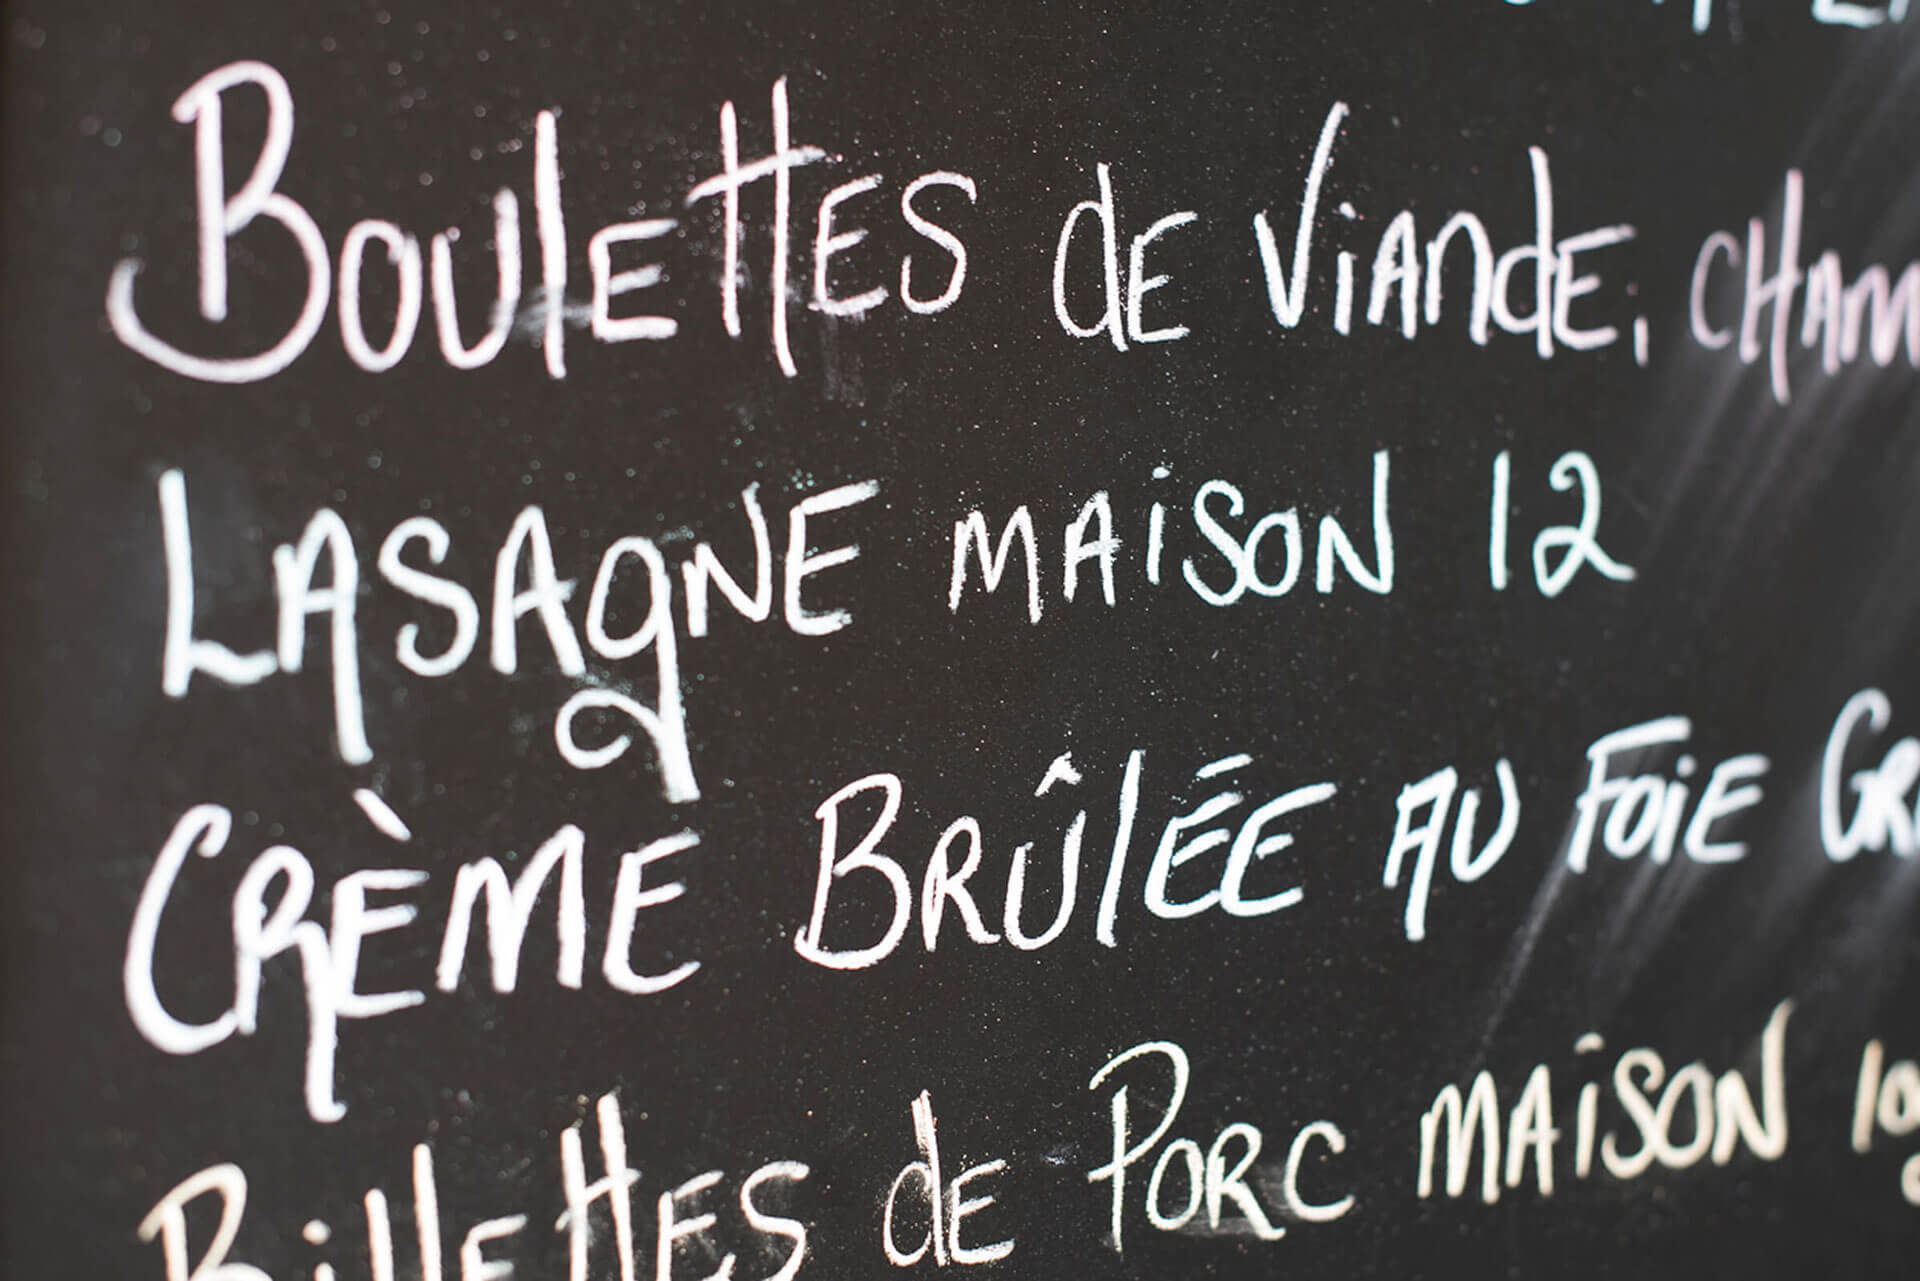 Boulettes de Viande, Cham
Lasagne maison 12
Crème Brûlée au Foie Gr
Billettes de Porc maison 10